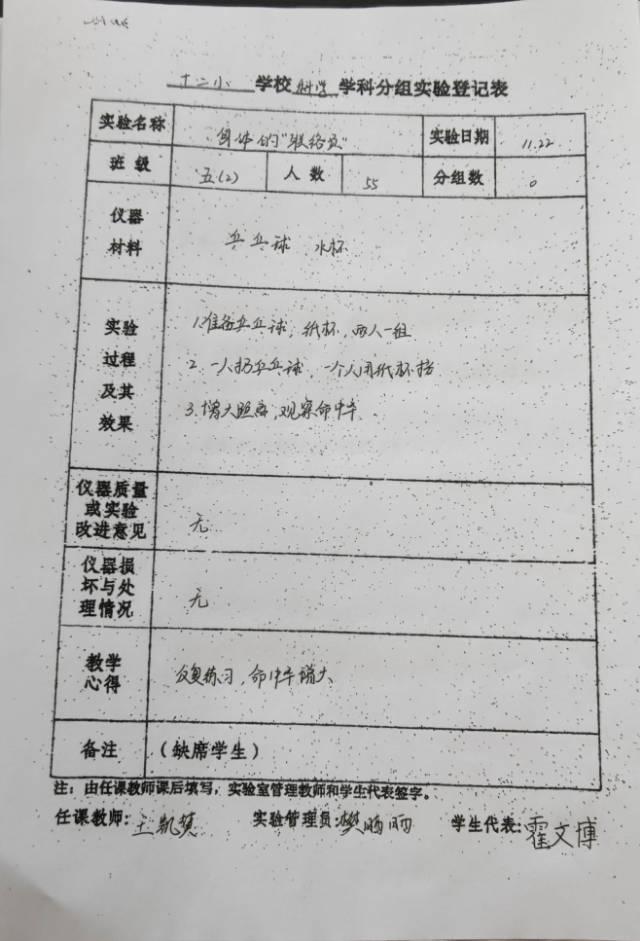 十二小学校科学学科分组实验登记表
实验名称 身体的"联络员" 实验日期 11.22
班级 五(2) 人数 55 分组数 0
仪器
材料
乒乓球 水杯
实验
过程
及其
效果
1.准备乒乓球,纸杯,两人一组
2.一人扔乒乓球,一个人用纸杯挡
3.增大距离,观察命中率.
仪器质量
或实验
改进意见
无
仪器损
坏与处
理情况
无
教学
心得
反复练习,命中率增大
备注 (缺席学生)
注:由任课教师课后填写,实验室管理教师和学生代表签字。
任课教师:王凯 实验管理员:樊旸丽 学生代表:霍文博